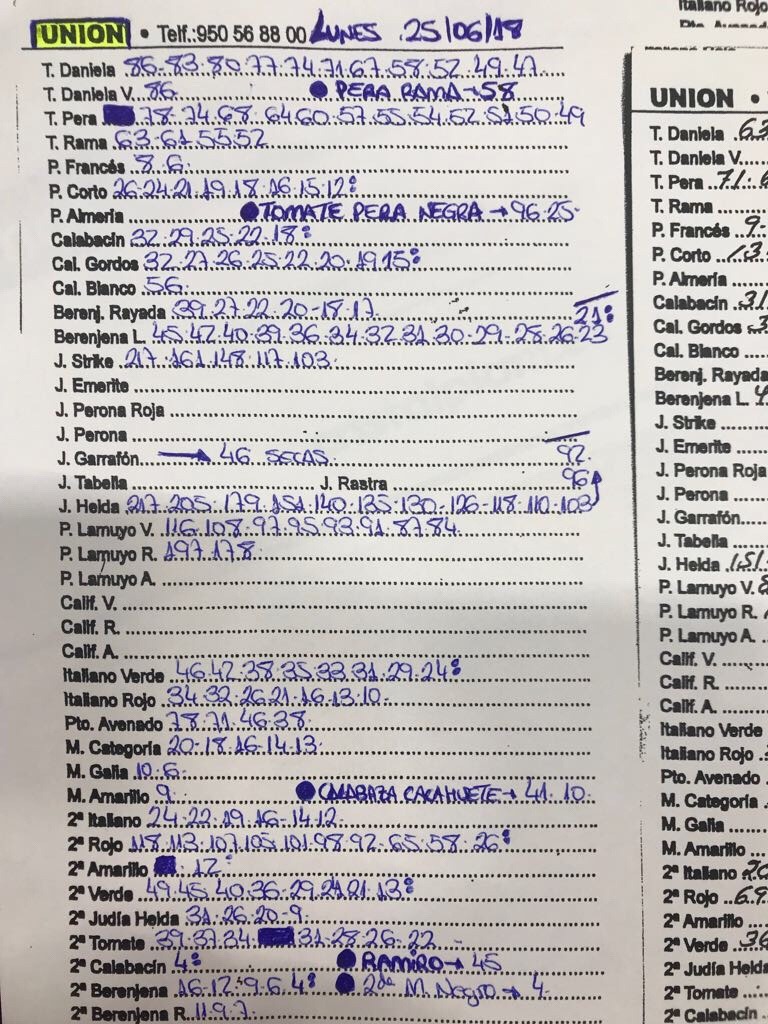 UNION • Telf.:950 56 88 00 LUNES 25/06/18
T. Daniela 86·83·80·77·74·71·67·58·52·49·47
T. Daniela V. 86 • PERA RAMA → 58
T. Pera 78·74·68·64·60·57·55·54·52·51·50·49
T. Rama 63·61·55·52
P. Francés 8·6
P. Corto 26·24·21·19·18·16·15·12:
P. Almería • TOMATE PERA NEGRA → 96·25
Calabacín 32·29·25·22·18:
Cal. Gordos 32·27·26·25·22·20·19·15:
Cal. Blanco 56
Berenj. Rayada 39·27·22·20·18·17 21:
Berenjena L. 45·42·40·39·36·34·32·31·30·29·28·26·23
J. Strike 217·161·148·117·103
J. Emerite
J. Perona Roja
J. Perona
J. Garrafón → 46 SECAS 92
J. Tabella J. Rastra 96
J. Helda 217·205·179·151·140·135·130·126·118·110·103
P. Lamuyo V. 116·108·97·95·93·91·87·84
P. Lamuyo R. 197·178
P. Lamuyo A.
Calif. V.
Calif. R.
Calif. A.
Italiano Verde 46·42·38·35·33·31·29·24:
Italiano Rojo 34·32·26·21·16·13·10
Pto. Avenado 78·71·46·38
M. Categoría 20·18·16·14·13
M. Galia 10·6
M. Amarillo 9 • CALABAZA CACAHUETE → 41·10
2ª Italiano 24·22·19·16·14·12
2ª Rojo 118·113·107·105·101·98·92·65·58·26:
2ª Amarillo 12
2ª Verde 49·45·40·36·29·24·21·13:
2ª Judía Helda 31·26·20·9
2ª Tomate 39·37·34 31·28·26·22
2ª Calabacín 4: • RAMIRO → 45
2ª Berenjena 16·12·9·6·4: • 2da M. Negro → 4
2ª Berenjena R. 11·9·7
Italiano Rojo
UNION •
T. Daniela 63
T. Daniela V.
T. Pera 71·6
T. Rama
P. Francés 9
P. Corto 13
P. Almería
Calabacín 31
Cal. Gordos
Cal. Blanco
Berenj. Rayada
Berenjena L.
J. Strike
J. Emerite
J. Perona Roja
J. Perona
J. Garrafón
J. Tabella
J. Helda 151
P. Lamuyo V.
P. Lamuyo R.
P. Lamuyo A.
Calif. V.
Calif. R.
Calif. A.
Italiano Verde
Italiano Rojo
Pto. Avenado
M. Categoría
M. Galia
M. Amarillo
2ª Italiano
2ª Rojo 69
2ª Amarillo
2ª Verde 36
2ª Judía Helda
2ª Tomate
2ª Calabacín